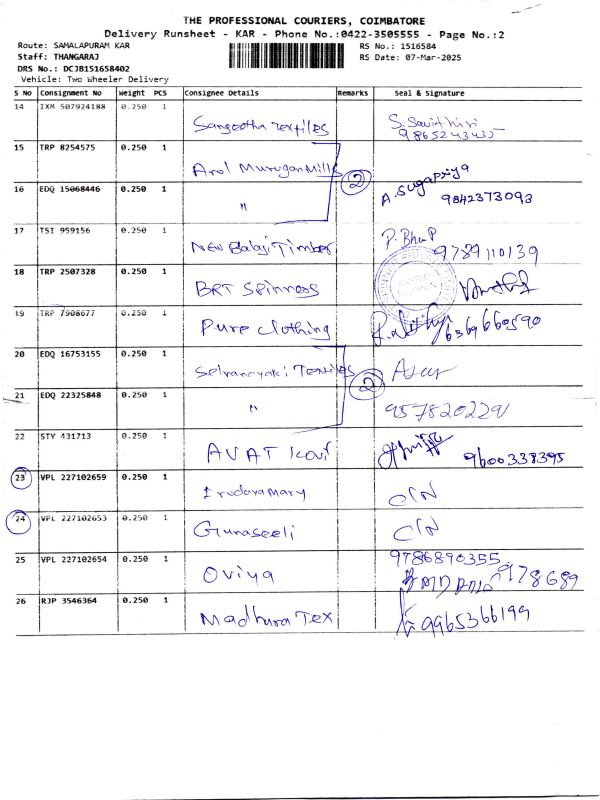 THE PROFESSIONAL COURIERS, COIMBATORE
Delivery Runsheet - KAR - Phone No.:0422-3505555 - Page No.:2
Route: SAMALAPURAM KAR
RS No.: 1516584
Staff: THANGARAJ
RS Date: 07-Mar-2025
DRS No.: DCJB151658402
Vehicle: Two Wheeler Delivery
S No Consignment No Weight PCS Consignee Details Remarks Seal & Signature
14 IXM 507924188 0.250 1 Sangeetha Textiles S. Savithiri
9865243435
15 TRP 8254575 0.250 1 Arol Murugan Mills 2 A. Sugapriya
16 EDQ 15068446 0.250 1 " 9842373093
17 TSI 959156 0.250 1 New Balaji Timber P. Bhu P
9789110139
18 TRP 2507328 0.250 1 BRT Spinners
19 TRP 7908677 0.250 1 Pure Clothing 6369660590
20 EDQ 16753155 0.250 1 Selvanayaki Textiles 2
21 EDQ 22325848 0.250 1 " 9578202291
22 STY 431713 0.250 1 AVAT 9600338395
23 VPL 227102659 0.250 1 Irudayamary C/N
24 VPL 227102653 0.250 1 Gunaseeli C/N
25 VPL 227102654 0.250 1 Oviya 9786890355
978689
26 RJP 3546364 0.250 1 Madhura Tex 9965366199